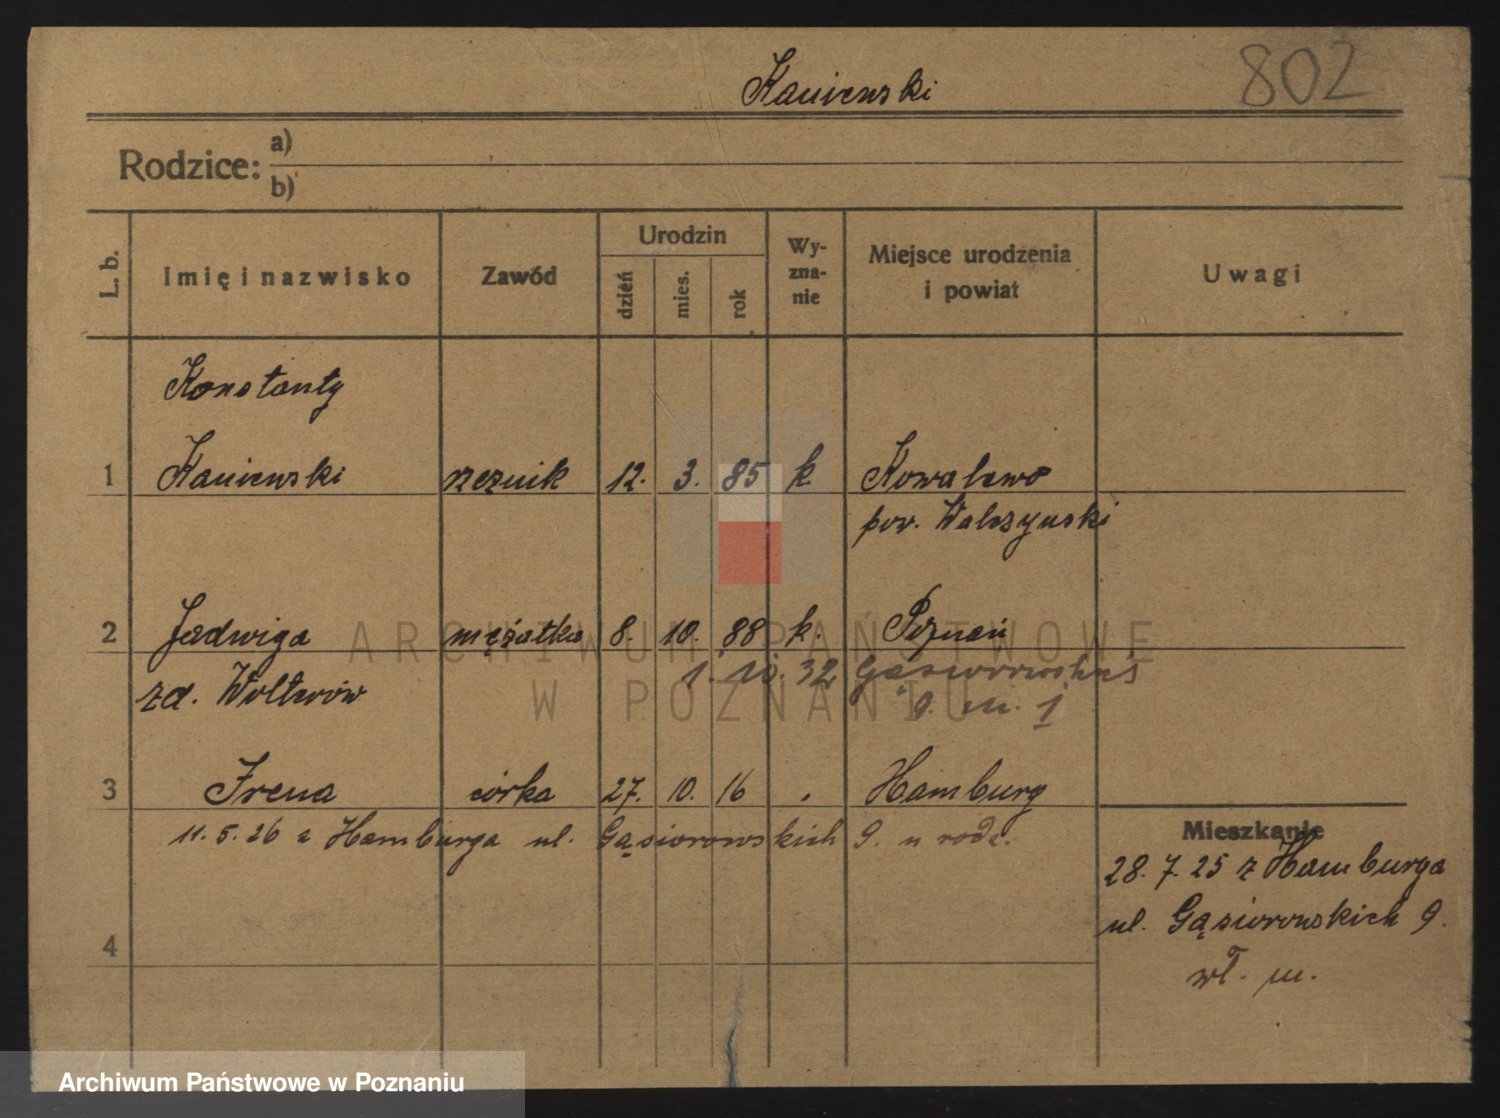 Kaniewski
802
Rodzice:
a)
b)
L. b.
Imię i nazwisko
Zawód
Urodzin
dzień
mies.
rok
Wy-
zna-
nie
Miejsce urodzenia
i powiat
Uwagi
Konstanty
1 Kaniewski rzeznik 12. 3. 85 k Kowalewo
pow.
2 Jadwiga mężatka 8. 10. 88 k. Poznań
zd. 1. 10. 32 Gąsiorowskich
9. m. 1
3 Irena córka 27. 10. 16 . Hamburg
11. 5. 26 z Hamburga ul. Gąsiorowskich 9. u rodz.
4
Mieszkanie
28. 7. 25 z Hamburga
ul. Gąsiorowskich 9.
wł. m.
ARCHIWUM PAŃSTWOWE
W POZNANIU
Archiwum Państwowe w Poznaniu